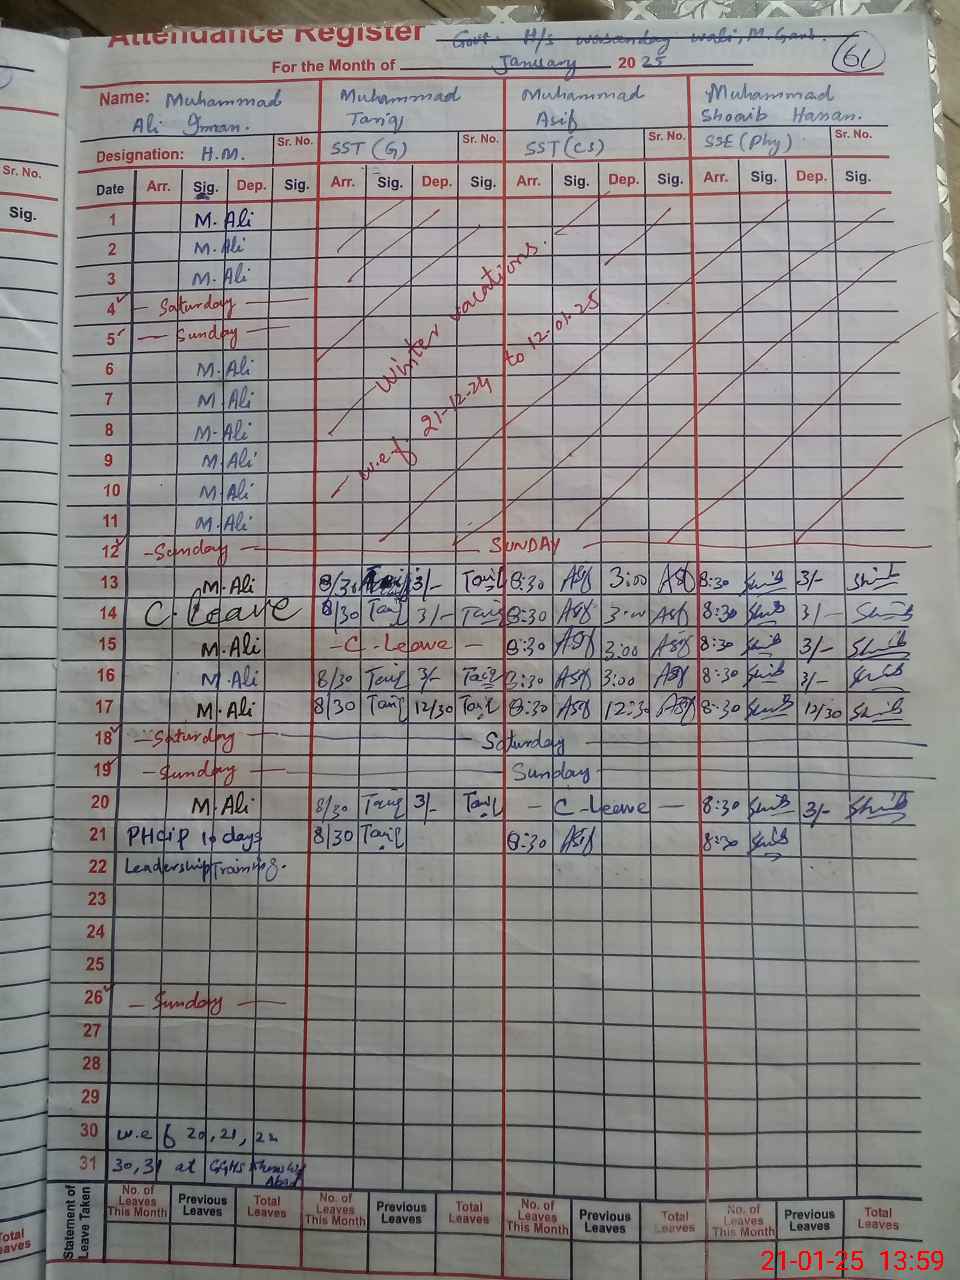 Attendance Register Govt. H/s wasanday wali, M.Garh.
61
For the Month of January 2025
Name: Muhammad Ali Imran. Muhammad Tariq Muhammad Asif Muhammad Shoaib Hassan.
Designation: H.M. Sr. No. SST (G) Sr. No. SST (CS) Sr. No. SSE (Phy) Sr. No.
Date Arr. Sig. Dep. Sig. Arr. Sig. Dep. Sig. Arr. Sig. Dep. Sig. Arr. Sig. Dep. Sig.
1 M. Ali
2 M. Ali
3 M. Ali
4 - Saturday -
5 - Sunday -
6 M. Ali
7 M. Ali
8 M. Ali
9 M. Ali
10 M. Ali
11 M. Ali
Winter vacations.
w.e.f. 21-12-24 to 12-01-25
12 - Sunday - SUNDAY
13 M. Ali 8/30 Tariq 3/- Tariq 8:30 Asif 3:00 Asif 8:30 Shoib 3/- Shoib
14 C. Leave 8/30 Tariq 3/- Tariq 8:30 Asif 3:00 Asif 8:30 Shoib 3/- Shoib
15 M. Ali - C. Leave - 8:30 Asif 3:00 Asif 8:30 Shoib 3/- Shoib
16 M. Ali 8/30 Tariq 3/- Tariq 8:30 Asif 3:00 Asif 8:30 Shoib 3/- Shoib
17 M. Ali 8/30 Tariq 12/30 Tariq 8:30 Asif 12:30 Asif 8:30 Shoib 12/30 Shoib
18 - Saturday - Saturday
19 - Sunday - Sunday
20 M. Ali 8/30 Tariq 3/- Tariq - C-Leave - 8:30 Shoib 3/- Shoib
21 10 days 8/30 Tariq 8:30 Asif 8:30 Shoib
22 Leadership Training.
23
24
25
26 - Sunday -
27
28
29
30 w.e.f 20, 21, 22
31 30, 31 at GGHS
Statement of Leave Taken
No. of Leaves This Month Previous Leaves Total Leaves No. of Leaves This Month Previous Leaves Total Leaves No. of Leaves This Month Previous Leaves Total Leaves No. of Leaves This Month Previous Leaves Total Leaves
Sr. No.
Sig.
Total Leaves
21-01-25 13:59